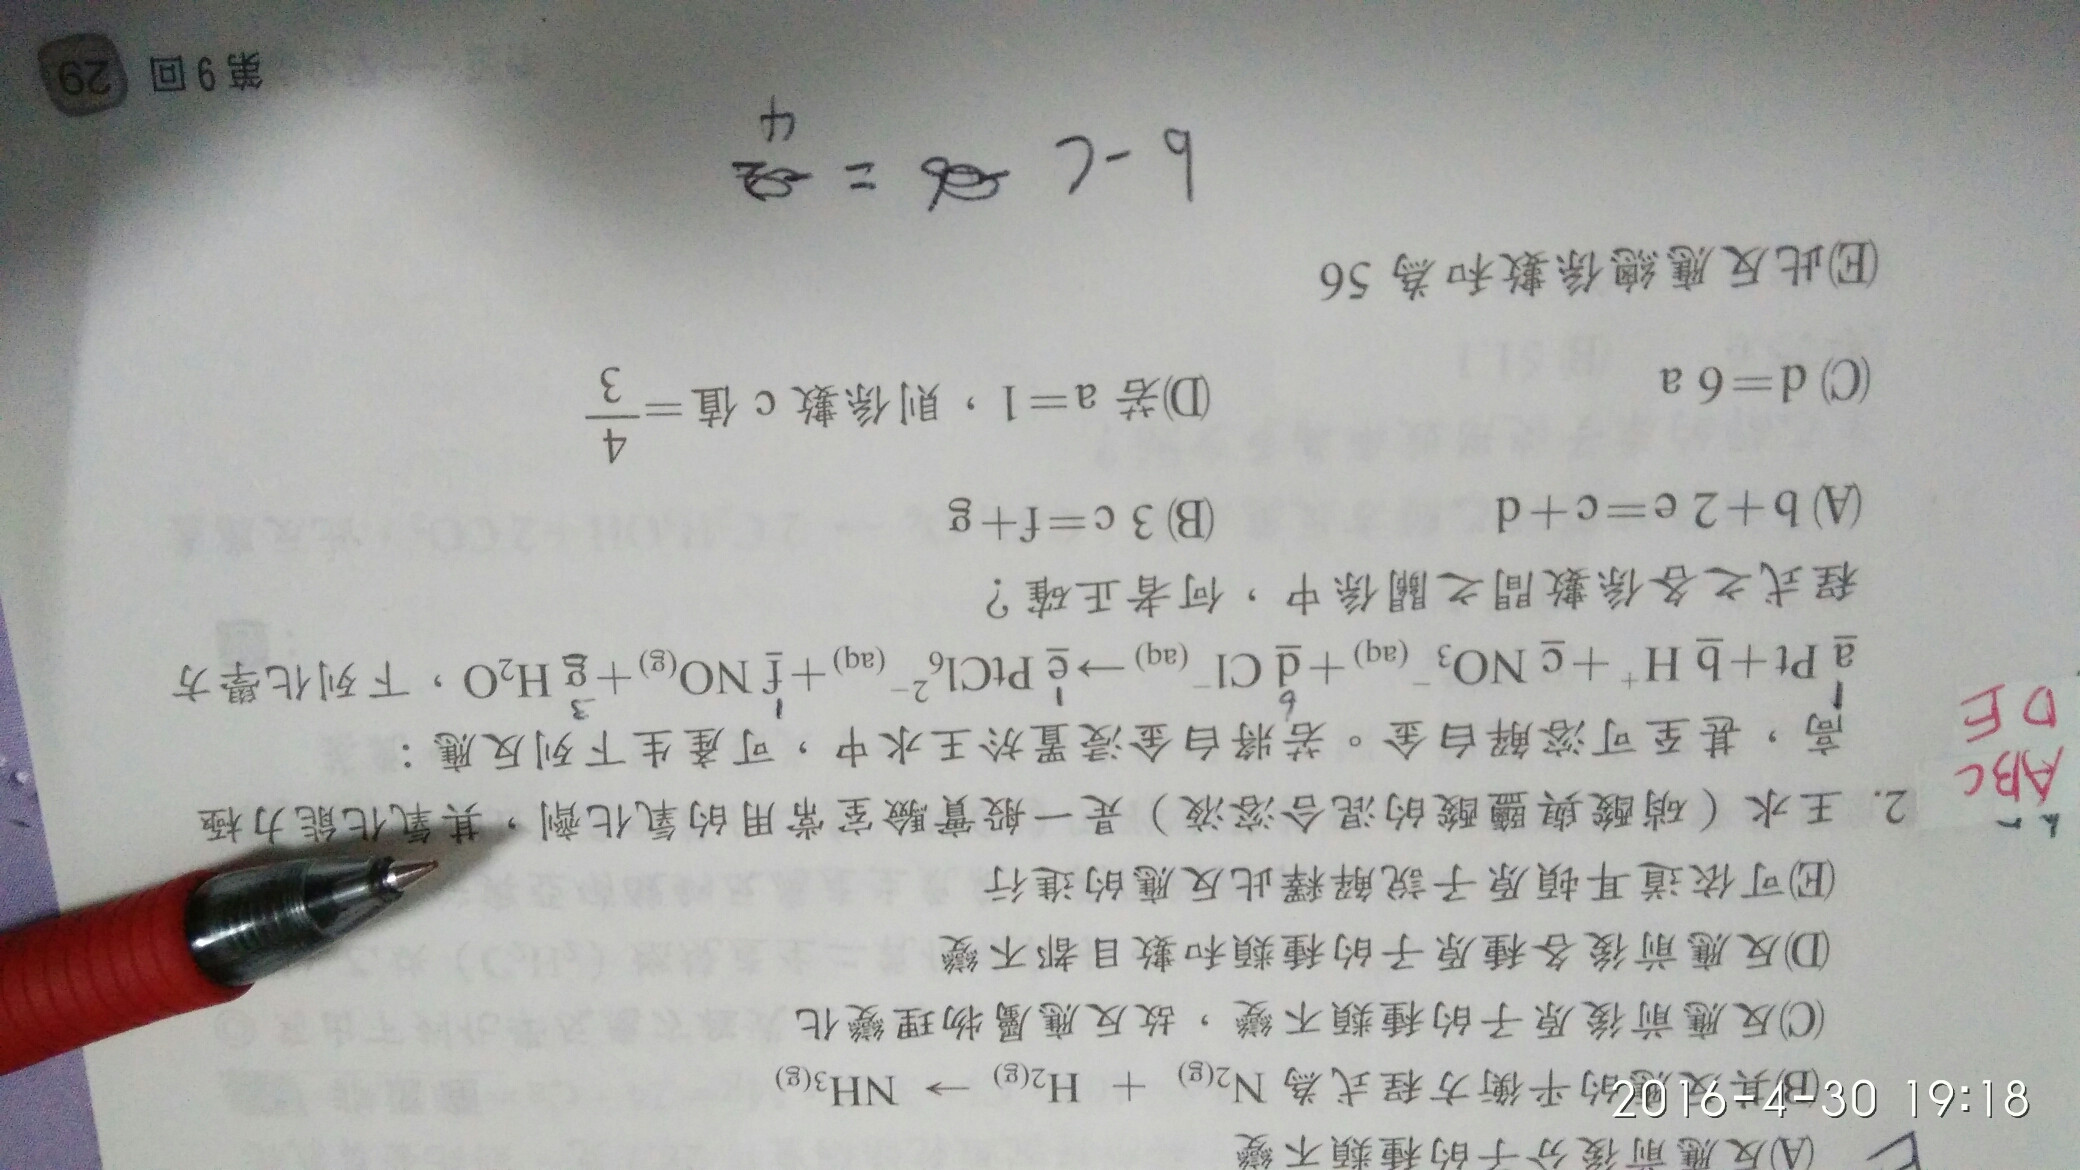 (A)反應前後分子的種類不變
(B)其反應的平衡方程式為 N₂(g) + H₂(g) → NH₃(g)
(C)反應前後原子的種類不變，故反應屬物理變化
(D)反應前後各種原子的種類和數目都不變
(E)可依道耳頓原子說解釋此反應的進行
ABC
DE
2. 王水（硝酸與鹽酸的混合溶液）是一般實驗室常用的氧化劑，其氧化能力極
高，甚至可溶解白金。若將白金浸置於王水中，可產生下列反應：
1 6 1 1 3
a Pt+b H⁺+c NO₃⁻(aq)+d Cl⁻(aq)→e PtCl₆²⁻(aq)+f NO(g)+g H₂O，下列化學方
程式之各係數間之關係中，何者正確？
(A) b+2e=c+d (B) 3c=f+g
(C) d=6a (D)若 a=1，則係數 c 值=4/3
(E)此反應總係數和為 56
b-c =
4
第9回 29
2016-4-30 19:18